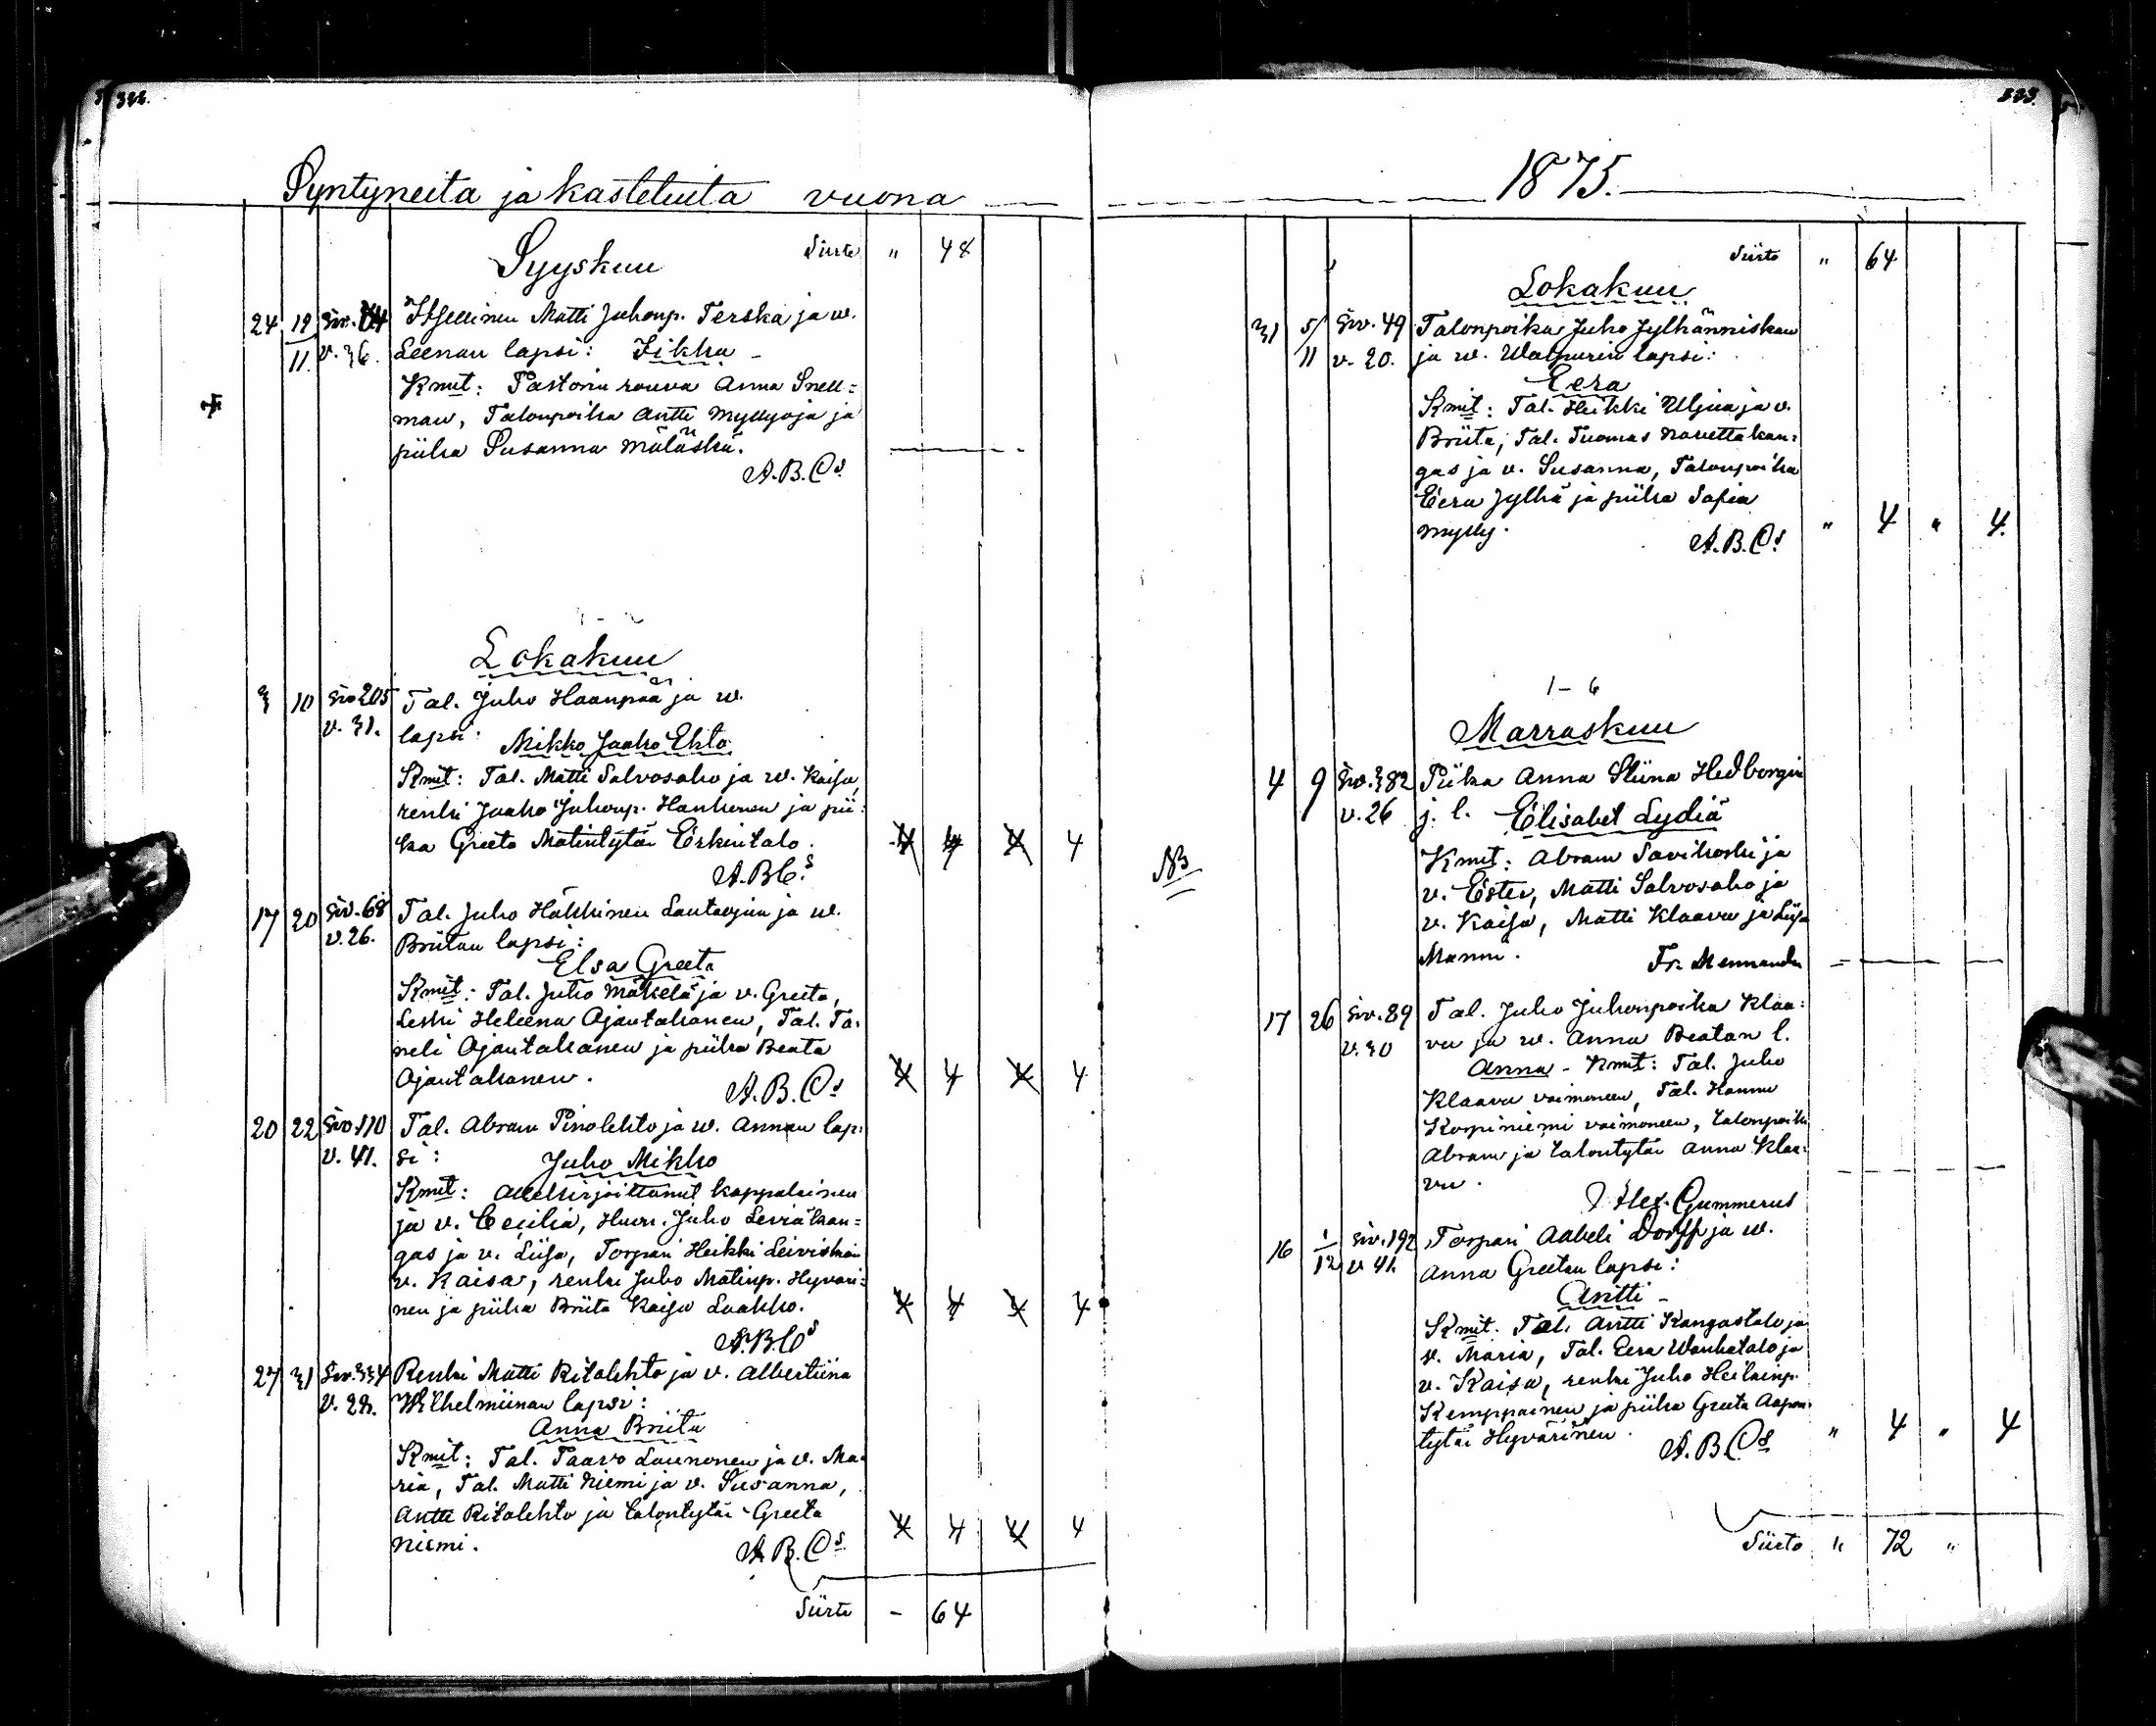 322.
Syntyneitä ja kastetuita vuona
Syyskuu
Siirto " 48
24 12/11 Siv. v. 36. Itsellinen Matti Juhonp. Terska ja w.
Leenan lapsi: Fikka
Kmit: Pastorin rouva Anna Snell=
man, Talonpoika Antti Myllyoja ja
piika Susanna Määskä.
A.B.Cs
Lokakuu
3 10 Siv 205 v. 31. Tal. Juho Haanpää ja w.
lapsi: Mikko Jaako Ehto
Kmit: Tal. Matti Salvosaho ja w. Kaisa,
renki Jaako Juhonp. Hanhonen ja pii=
ka Greeta Matintytär Erkintalo. 4 4 4 4
A.B.Cs
17 20 Siv. 68 v. 26. Tal. Juho Häkkinen Lautaojan ja w.
Briitan lapsi:
Elsa Greeta
Kmit: Tal. Juho Mäkelä ja v. Greeta,
Leski Heleena Ajantakanen, Tal. Ta=
neli Ajantakanen ja piika Beata
Ajantakanen. 4 4 4 4
A.B.Cs
20 22 Siv. 110 v. 41. Tal. Abram Pinolehto ja w. Annan lap=
si: Juho Mikko
Kmit: Allekirjoittanut kappalainen
ja v. Cecilia, Huon. Juho Leviäkan=
gas ja v. Liisa, Torpari Heikki Leiviskän
v. Kaisa, renki Juho Matinp. Hyväri=
nen ja piika Briita Kaisa Laakko. 4 4 4 4
A.B.Cs
27 31 Siv. 334 v. 22. Renki Matti Ritalehto ja v. Albertiina
Wilhelmiinan lapsi:
Anna Briita
Kmit: Tal. Paavo Launonen ja v. Ma=
ria, Tal. Matti Niemi ja v. Susanna,
Antti Ritalehto ja talontytär Greeta
Niemi. 4 4 4 4
A.B.Cs
Siirto - 64
323.
1875.
Siirto " 64
Lokakuu
31 5/11 Siv. 49 v. 20. Talonpoika Juho Jylhänniskan
ja w. Walpurin lapsi:
Eera
Kmit: Tal. Heikki Uljua ja v.
Briita, Tal. Tuomas Navettakan=
gas ja v. Susanna, Talonpoika
Eera Jylhä ja piika Sofia
Mylly. " 4 " 4.
A.B.Cs
1 - 6
Marraskuu
4 9 Siv. 382 v. 26 Piika Anna Stiina Hedbergin
j. l. Elisabet Lydiä
NB
Kmit: Abram Savikoski ja
v. Ester, Matti Salvosaho ja
v. Kaisa, Matti Klaavu ja Liisa
Manni. Fr. Mennander
17 26 Siv. 89 v. 30 Tal. Juho Juhonpoika Klaa=
vu ja w. Anna Beatan l.
Anna - Kmit: Tal. Juho
Klaavu vaimoneen, Tal. Hannu
Korpiniemi vaimoneen, talonpoika
Abram ja talontytär Anna Klaa=
vu.
Alex. Gummerus
16 1/12 Siv. 192 v 41. Torpari Aabeli Dorff ja w.
Anna Greetan lapsi:
Antti -
Kmit. Tal. Antti Kangastalo ja
v. Maria, Tal. Eera Wanhatalo ja
v. Kaisa, renki Juho Heikinp.
Kemppainen ja piika Greeta Aapon=
tytär Hyvärinen. " 4 " 4
A.B.Cs
Siirto " 72 "